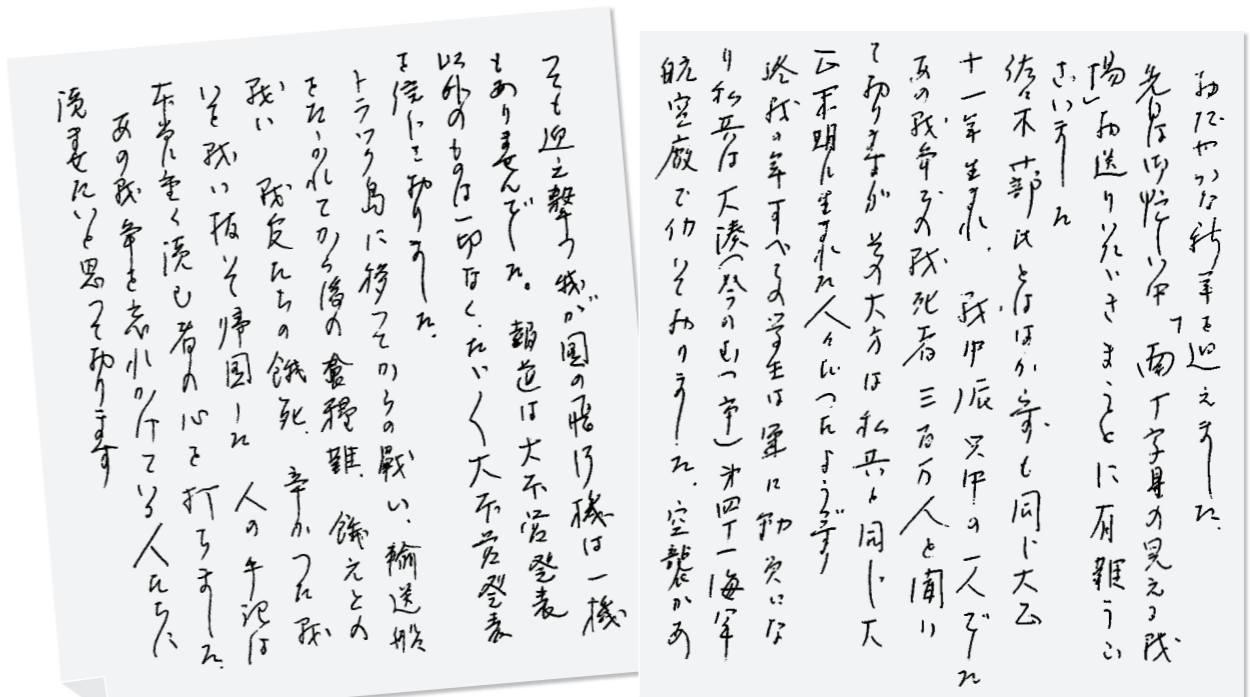 おだやかな新年を迎えました。
先日は御忙しい中「南十字星の見える戦
場」お送りいたゞきまことに有難うご
ざいました
佐々木 氏とははからずも同じ大正
十一年生まれ、戦中派只中の一人でした
あの戦争での戦死者三百万人と聞い
て居りますが その大方は私共と同じ大
正末期に生まれた人々だつたようです
終戦の年すべての学生は軍に動員にな
り私共は大湊(今のむつ市)第四十一海軍
航空廠で仂いて居りました。空襲があ
つても迎え撃つ我が国の飛行機は一機
もありませんでした。報道は大本営発表
以外のものは一切なく、たゞ〳〵大本営発表
を信じて居りました。
トラック島に移つてからの戦い、輸送船
をたゝかれてから後の食糧難、餓えとの
戦い 戦友たちの餓死、辛かつた戦
いを戦い抜いて帰国した 人の手記は
本当に重く読む者の心を打ちました。
あの戦争を忘れかけている人たちに
読ませたいと思つて居ります